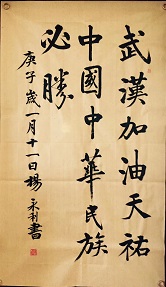 武漢加油天祐
中國中華民族
必勝
庚子歲一月十一日楊永利書